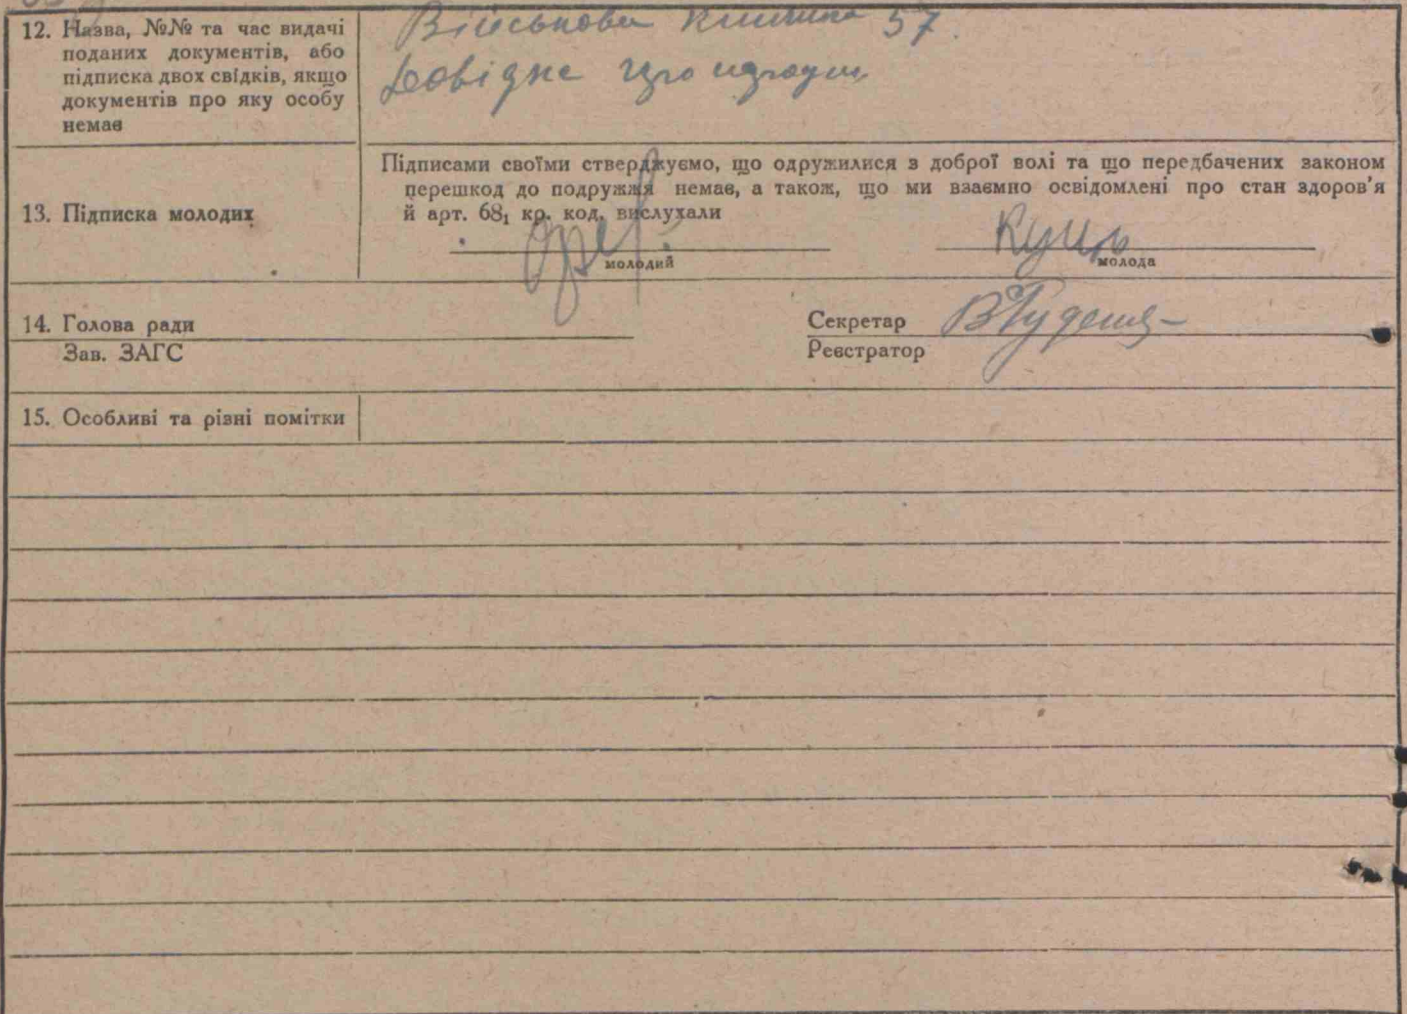 12. Назва, №№ та час видачі
поданих документів, або
підписка двох свідків, якщо
документів про яку особу
немає
Військова книжка 57.
Довідка про
13. Підписка молодих
Підписами своїми стверджуємо, що одружилися з доброї волі та що передбачених законом
перешкод до подружжя немає, а також, що ми взаємно освідомлені про стан здоров'я
й арт. 68₁ кр. код. вислухали
Куць
молодий молода
14. Голова ради
Зав. ЗАГС
Секретар
Реєстратор
15. Особливі та різні помітки